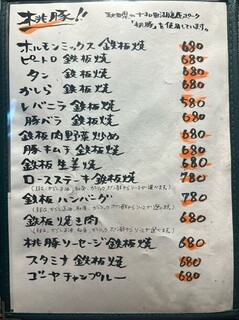 桃豚!!
「桃豚」を使用しています。
ホルモンミックス 鉄板焼 680
ピートロ 鉄板焼 680
タン 鉄板焼 680
かしら 鉄板焼 680
レバニラ 鉄板焼 580
豚バラ 鉄板焼 680
鉄板肉野菜炒め 680
豚キムチ 鉄板焼 680
鉄板生姜焼 680
ロースステーキ鉄板焼 780
鉄板ハンバーグ 780
鉄板焼き肉 680
桃豚ソーセージ鉄板焼 680
スタミナ 鉄板焼 680
ゴーヤチャンプルー 680